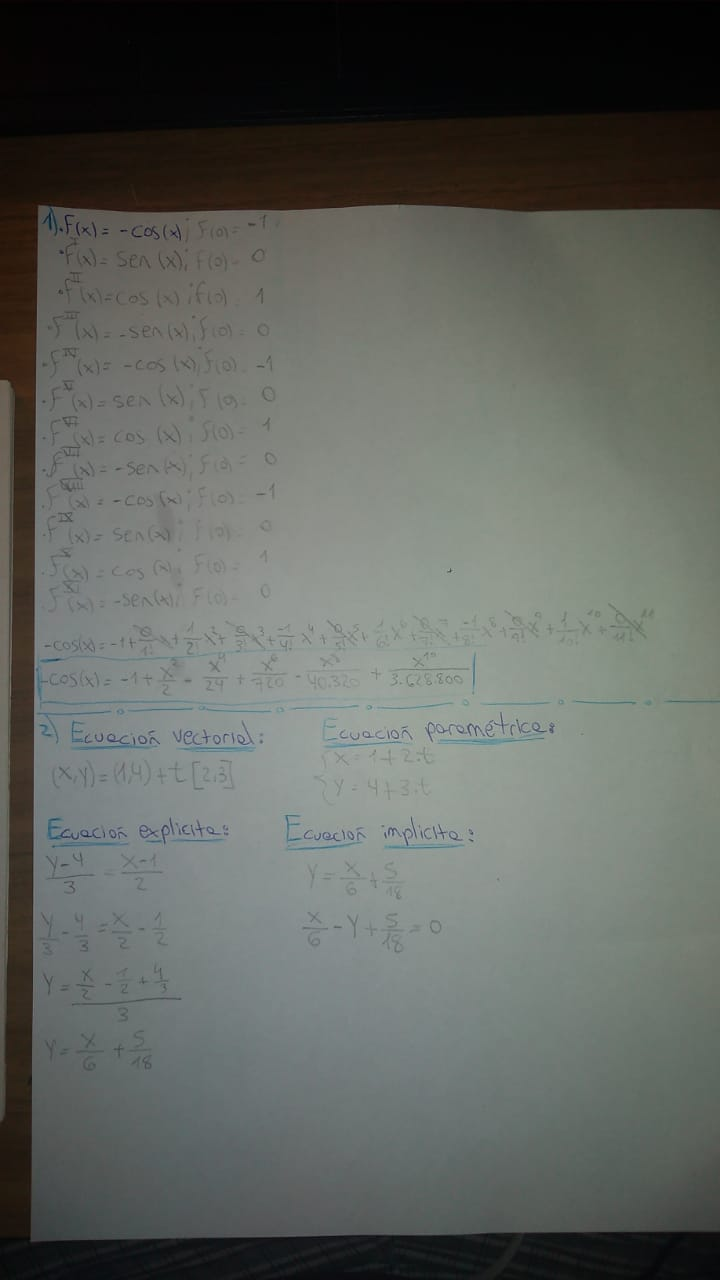 1). F(x) = -cos(x); F(0) = -1
·F^I(x) = sen(x); F(0) = 0
·F^II(x) = cos(x); f(0) = 1
·F^III(x) = -sen(x); f(0) = 0
·F^IV(x) = -cos(x); f(0) = -1
·F^V(x) = sen(x); F(0) = 0
·F^VI(x) = cos(x); f(0) = 1
·F^VII(x) = -sen(x); F(0) = 0
·F^VIII(x) = -cos(x); F(0) = -1
·F^IX(x) = sen(x); F(0) = 0
·F^X(x) = cos(x); F(0) = 1
·F^XI(x) = -sen(x); F(0) = 0
-cos(x) = -1 + 0/1! x + 1/2! x^2 + 0/3! x^3 + -1/4! x^4 + 0/5! x^5 + 1/6! x^6 + 0/7! x^7 + -1/8! x^8 + 0/9! x^9 + 1/10! x^10 + 0/11! x^11
-cos(x) = -1 + x^2/2 - x^4/24 + x^6/720 - x^8/40.320 + x^10/3.628.800
2) Ecuación vectorial:
(x,y) = (1,4) + t [2,3]
Ecuación paramétrica:
{ x = 1 + 2·t
{ y = 4 + 3·t
Ecuación explicita:
y-4/3 = x-1/2
y/3 - 4/3 = x/2 - 1/2
y = (x/2 - 1/2 + 4/3)/3
y = x/6 + 5/18
Ecuación implicita:
y = x/6 + 5/18
x/6 - y + 5/18 = 0